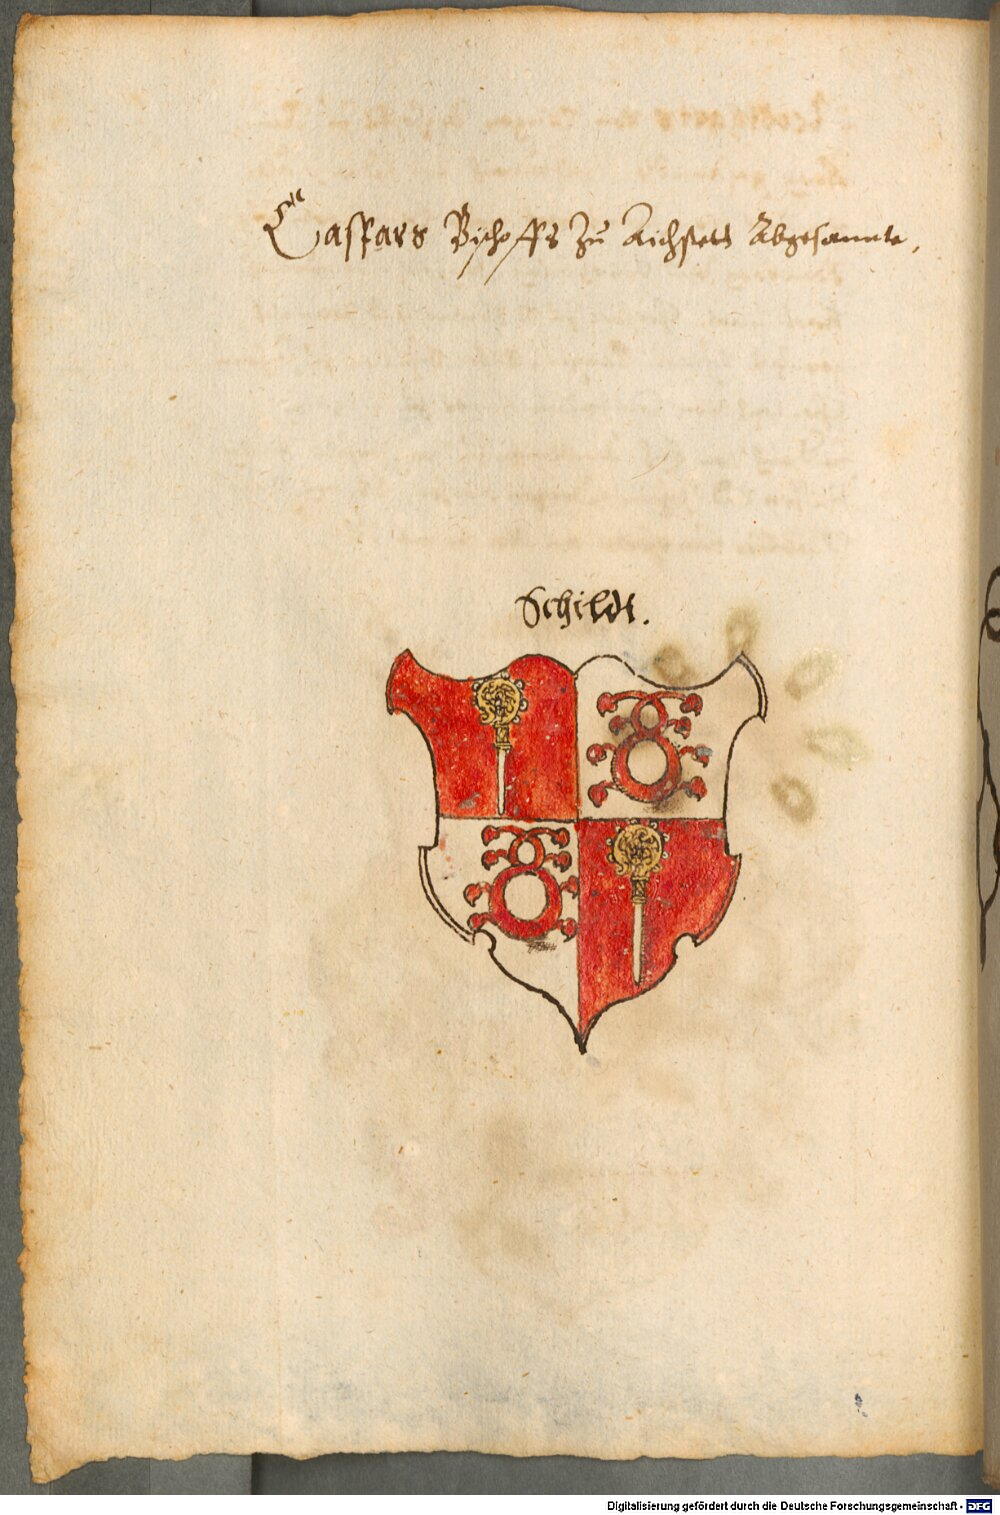 Caspars Bischoffs zu Aichstett Abgesannte,
Schildt.
Digitalisierung gefördert durch die Deutsche Forschungsgemeinschaft - DFG